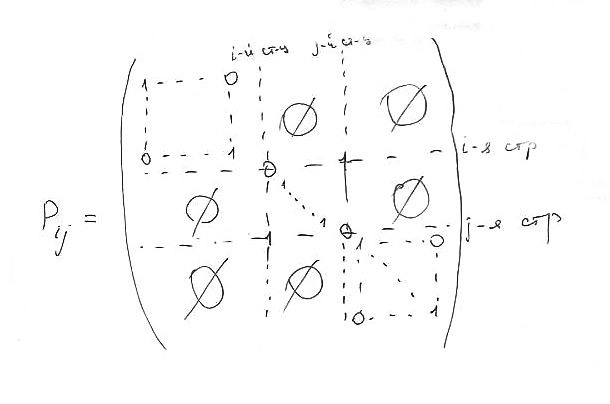 i-й ст-ц j-й ст-ц
1 0
∅ ∅
0 1
0 1 i-я стр
1
∅ 1 ∅
P_ij =
1 0 j-я стр
1 0
∅ ∅
0 1